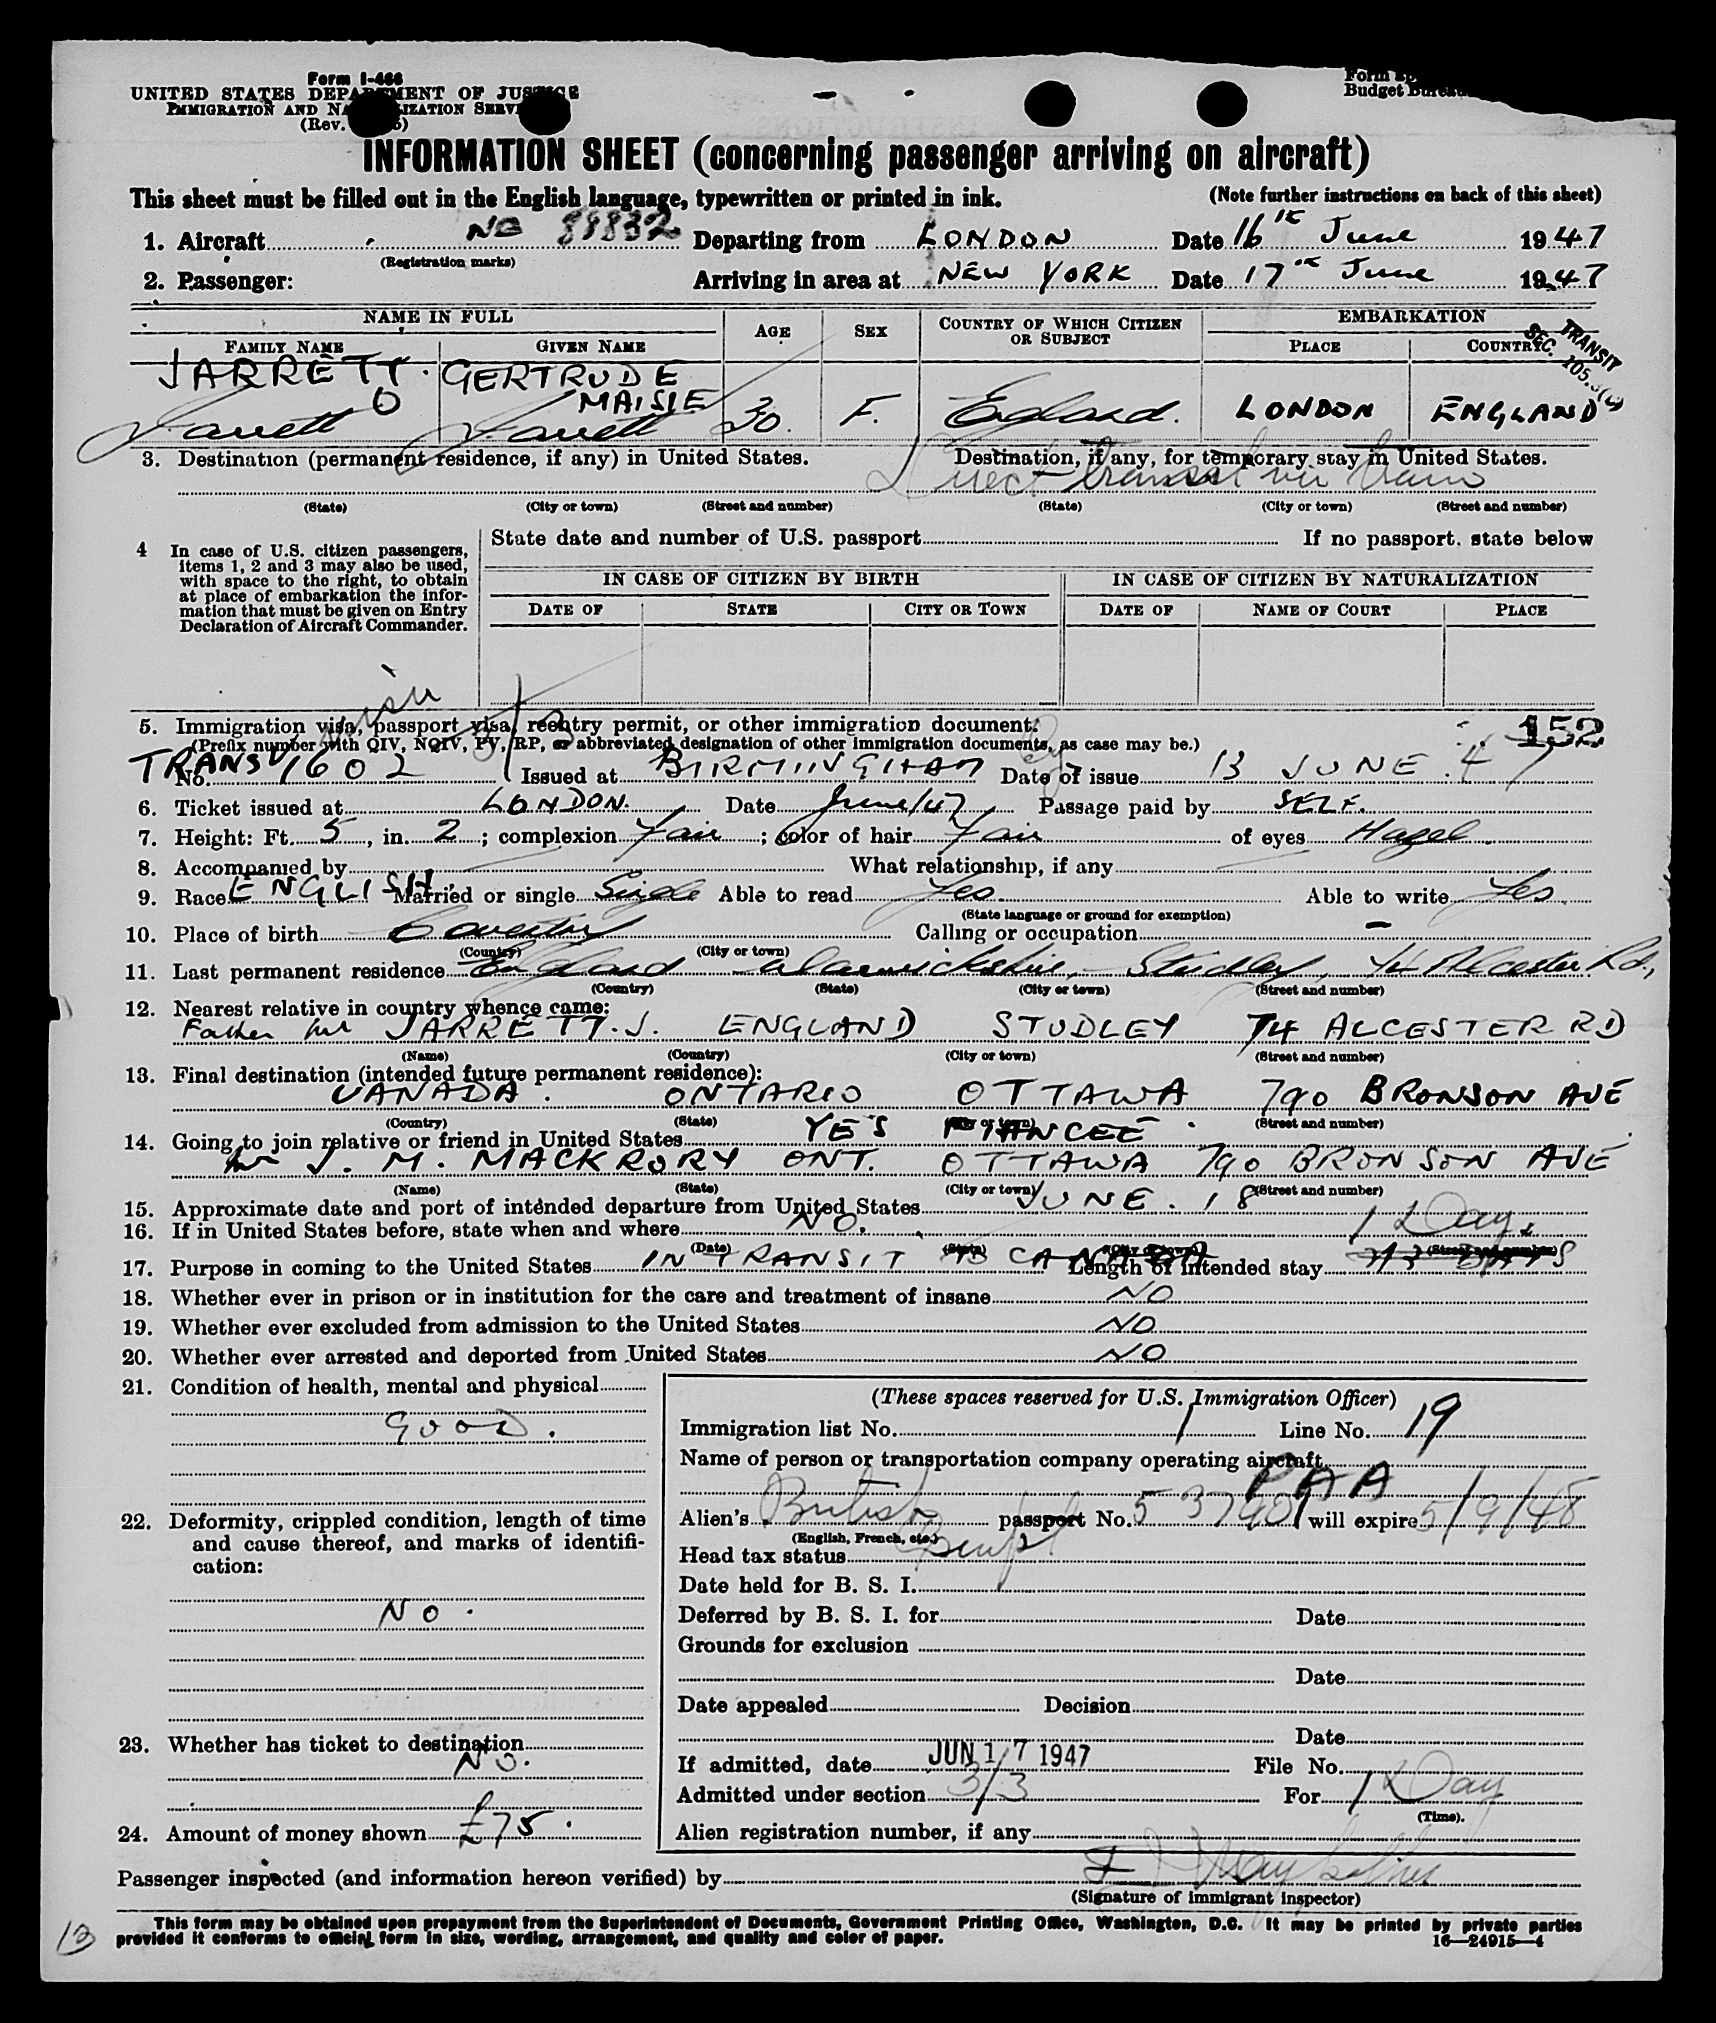 Form I-466
UNITED STATES DEPARTMENT OF JUSTICE
IMMIGRATION AND NATURALIZATION SERVICE
(Rev.
Budget Bureau
INFORMATION SHEET (concerning passenger arriving on aircraft)
This sheet must be filled out in the English language, typewritten or printed in ink. (Note further instructions on back of this sheet)
1. Aircraft 88832 Departing from LONDON Date 16th June 1947
(Registration marks)
2. Passenger: Arriving in area at NEW YORK Date 17th June 1947
NAME IN FULL AGE SEX COUNTRY OF WHICH CITIZEN OR SUBJECT EMBARKATION
FAMILY NAME GIVEN NAME PLACE COUNTRY
TRANSIT
SEC. 105.
JARRETT. GERTRUDE
MAISIE
Jarrett Jarrett 30. F. England. LONDON ENGLAND
3. Destination (permanent residence, if any) in United States. Destination, if any, for temporary stay in United States.
Direct transit via train
(State) (City or town) (Street and number) (State) (City or town) (Street and number)
4 In case of U.S. citizen passengers, items 1, 2 and 3 may also be used, with space to the right, to obtain at place of embarkation the information that must be given on Entry Declaration of Aircraft Commander.
State date and number of U.S. passport If no passport, state below
IN CASE OF CITIZEN BY BIRTH IN CASE OF CITIZEN BY NATURALIZATION
DATE OF STATE CITY OR TOWN DATE OF NAME OF COURT PLACE
5. Immigration visa, passport visa, reentry permit, or other immigration document: 152
(Prefix number with QIV, NQIV, PV, RP, or abbreviated designation of other immigration documents, as case may be.)
TRANS V No. 1602 Issued at BIRMINGHAM Date of issue 13 JUNE 47
6. Ticket issued at LONDON. Date June/47 Passage paid by SELF.
7. Height: Ft. 5, in. 2; complexion Fair; color of hair Fair of eyes Hazel
8. Accompanied by What relationship, if any
9. Race ENGLISH. Married or single Single Able to read Yes Able to write Yes.
(State language or ground for exemption)
10. Place of birth Coventry Calling or occupation –
(Country) (City or town)
11. Last permanent residence England Warwickshire, Studley, 74 Alcester Rd.,
(Country) (State) (City or town) (Street and number)
12. Nearest relative in country whence came:
Father Mr JARRETT. J. ENGLAND STUDLEY 74 ALCESTER RD
(Name) (Country) (City or town) (Street and number)
13. Final destination (intended future permanent residence):
CANADA. ONTARIO OTTAWA 790 BRONSON AVE
(Country) (State) (City or town) (Street and number)
14. Going to join relative or friend in United States YES FIANCEE.
Mr J. M. MACKRORY ONT. OTTAWA 790 BRONSON AVE
(Name) (State) (City or town) (Street and number)
15. Approximate date and port of intended departure from United States JUNE. 18
16. If in United States before, state when and where NO. 1 Day.
(Date) (State) (City or town) (Street and number)
17. Purpose in coming to the United States IN TRANSIT TO CANADA Length of intended stay DAYS
18. Whether ever in prison or in institution for the care and treatment of insane NO
19. Whether ever excluded from admission to the United States NO
20. Whether ever arrested and deported from United States NO
21. Condition of health, mental and physical
GOOD.
22. Deformity, crippled condition, length of time and cause thereof, and marks of identification:
NO.
23. Whether has ticket to destination
NO.
24. Amount of money shown £75.
(These spaces reserved for U.S. Immigration Officer)
Immigration list No. 1 Line No. 19
Name of person or transportation company operating aircraft
PAA
Alien's British passport No. 537901 will expire 5/9/48
(English, French, etc.)
Head tax status Exempt
Date held for B. S. I.
Deferred by B. S. I. for Date
Grounds for exclusion
Date
Date appealed Decision
Date
If admitted, date JUN 17 1947 File No.
Admitted under section 3/3 For 1 Day
(Time).
Alien registration number, if any
Passenger inspected (and information hereon verified) by
(Signature of immigrant inspector)
This form may be obtained upon prepayment from the Superintendent of Documents, Government Printing Office, Washington, D.C. It may be printed by private parties
provided it conforms to official form in size, wording, arrangement, and quality and color of paper. 16—24915—4
13